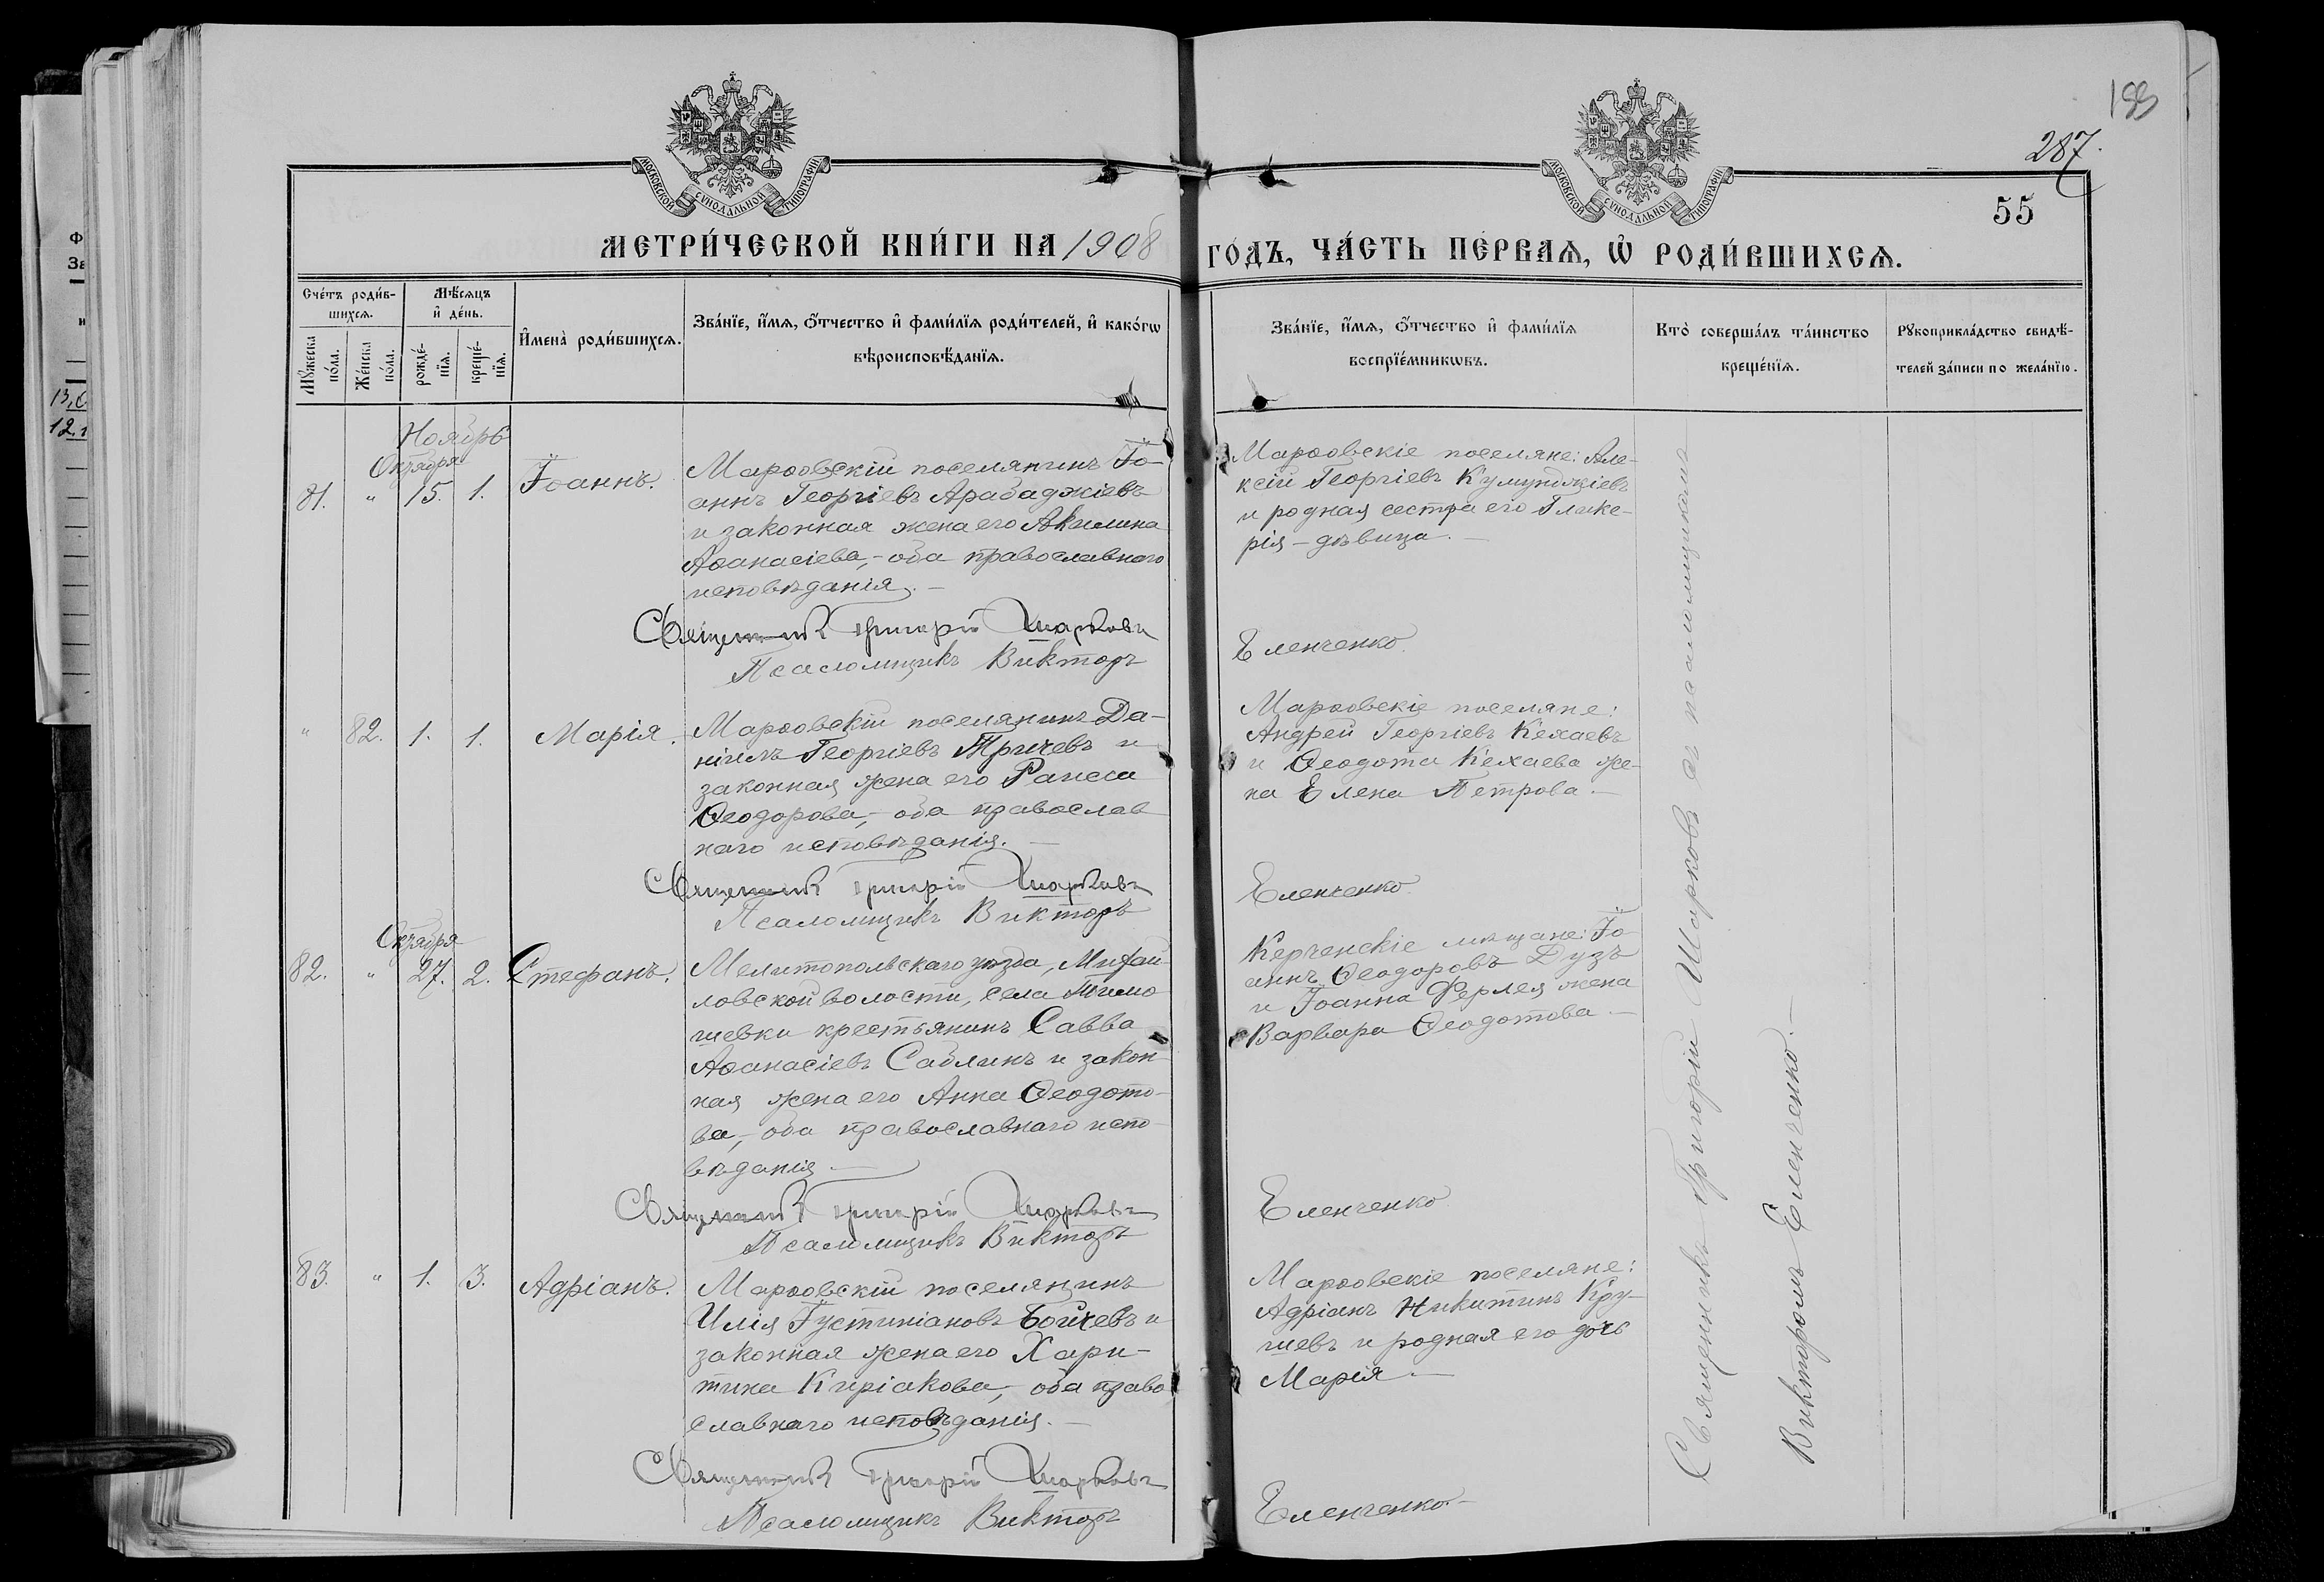 МОСКОВСКОЙ СѴНОДАЛЬНОЙ ТИПОГРАФІИ
МОСКОВСКОЙ СѴНОДАЛЬНОЙ ТИПОГРАФІИ
188
287.
55
МЕТРИ́ЧЕСКОЙ КНИ́ГИ НА 1908 ГО́ДЪ, ЧА́СТЬ ПЕ́РВАѦ, Ѡ҆ РОДИ́ВШИХСѦ.
Сче́тъ роди́в-
шихсѧ.
Мꙋжеска по́ла.
Же́нска по́ла.
Мѣ́сѧцъ
и҆ де́нь.
рожде́-
нїѧ.
креще́-
нїѧ.
И҆мена̀ роди́вшихсѧ.
Зва́нїе, и҆́мѧ, ѻ҆́тчество и҆ фами́лїѧ роди́телей, и҆ како́гѡ
вѣроисповѣ́данїѧ.
Зва́нїе, и҆́мѧ, ѻ҆́тчество и҆ фами́лїѧ
воспрїе́мникѡвъ.
Кто̀ соверша́лъ та́инство
креще́нїѧ.
Рꙋкоприкла́дство свидѣ́-
телей за́писи по жела́нїю.
Ноябрь
Октября
81. " 15. 1. Іоаннъ.
Марѳовскій поселянинъ Іо-
аннъ Георгіевъ Арабаджіевъ
и законная жена его Акилина
Аѳанасіева,- оба православнаго
исповѣданія.-
Священникъ Григорій Шарковъ
Псаломщикъ Викторъ
Марѳовскіе поселяне: Але-
ксій Георгіевъ Кумунджіевъ
и родная сестра его Глике-
рія - дѣвица.-
Еленченко.
" 82. 1. 1. Марія.
Марѳовскій поселянинъ Да-
ніилъ Георгіевъ Тричевъ и
законная жена его Раиса
Ѳеодорова,- оба православ
наго исповѣданія.-
Священникъ Григорій Шарковъ
Псаломщикъ Викторъ
Марѳовскіе поселяне:
Андрей Георгіевъ Кехаевъ
и Ѳеодота Кехаева же-
на Елена Петрова.-
Еленченко.
Октября
82. " 27. 2. Стефанъ.
Мелитопольскаго уѣзда, Михай-
ловской волости, села Тимо
шевки крестьянинъ Савва
Аѳанасіевъ Саблинъ и закон-
ная жена его Анна Ѳеодото-
ва,- оба православнаго испо-
вѣданія.-
Священникъ Григорій Шарковъ
Псаломщикъ Викторъ
Керченскіе мѣщане: Іо-
аннъ Ѳеодоровъ Дузъ
и Іоанна Ферлея жена
Варвара Ѳеодотова.-
Еленченко
83. " 1. 3. Адріанъ.
Марѳовскій поселянинъ
Илія Іустиніановъ Бойчевъ и
законная жена его Хари-
тина Киріакова,- оба право
славнаго исповѣданія.-
Священникъ Григорій Шарковъ
Псаломщикъ Викторъ
Марѳовскіе поселяне:
Адріанъ Никитинъ Кру-
шевъ и родная его дочь
Марія.-
Еленченко.-
Священникъ Григорій Шарковъ съ псаломщикомъ
Викторомъ Еленченко.-